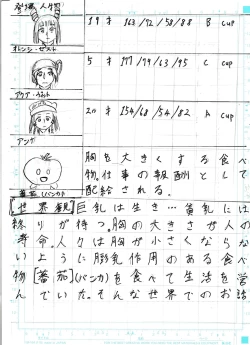 登場人物
19才 163/92/58/88 B cup
オレンジ・ゼスト
20才 154/68/54/82 A cup
アンカ
胸を大きくする食べ
物。仕事の報酬として
配給される。
蕃茄(バンカ)
[世界観]巨乳は生き…貧乳には
終りが待つ。胸の大きさが人の
寿命。人々は胸が小さくならな
いように膨乳作用のある食べ
物[蕃茄](バンカ)を食べて生活を営
んでいた。そんな世界でのお話